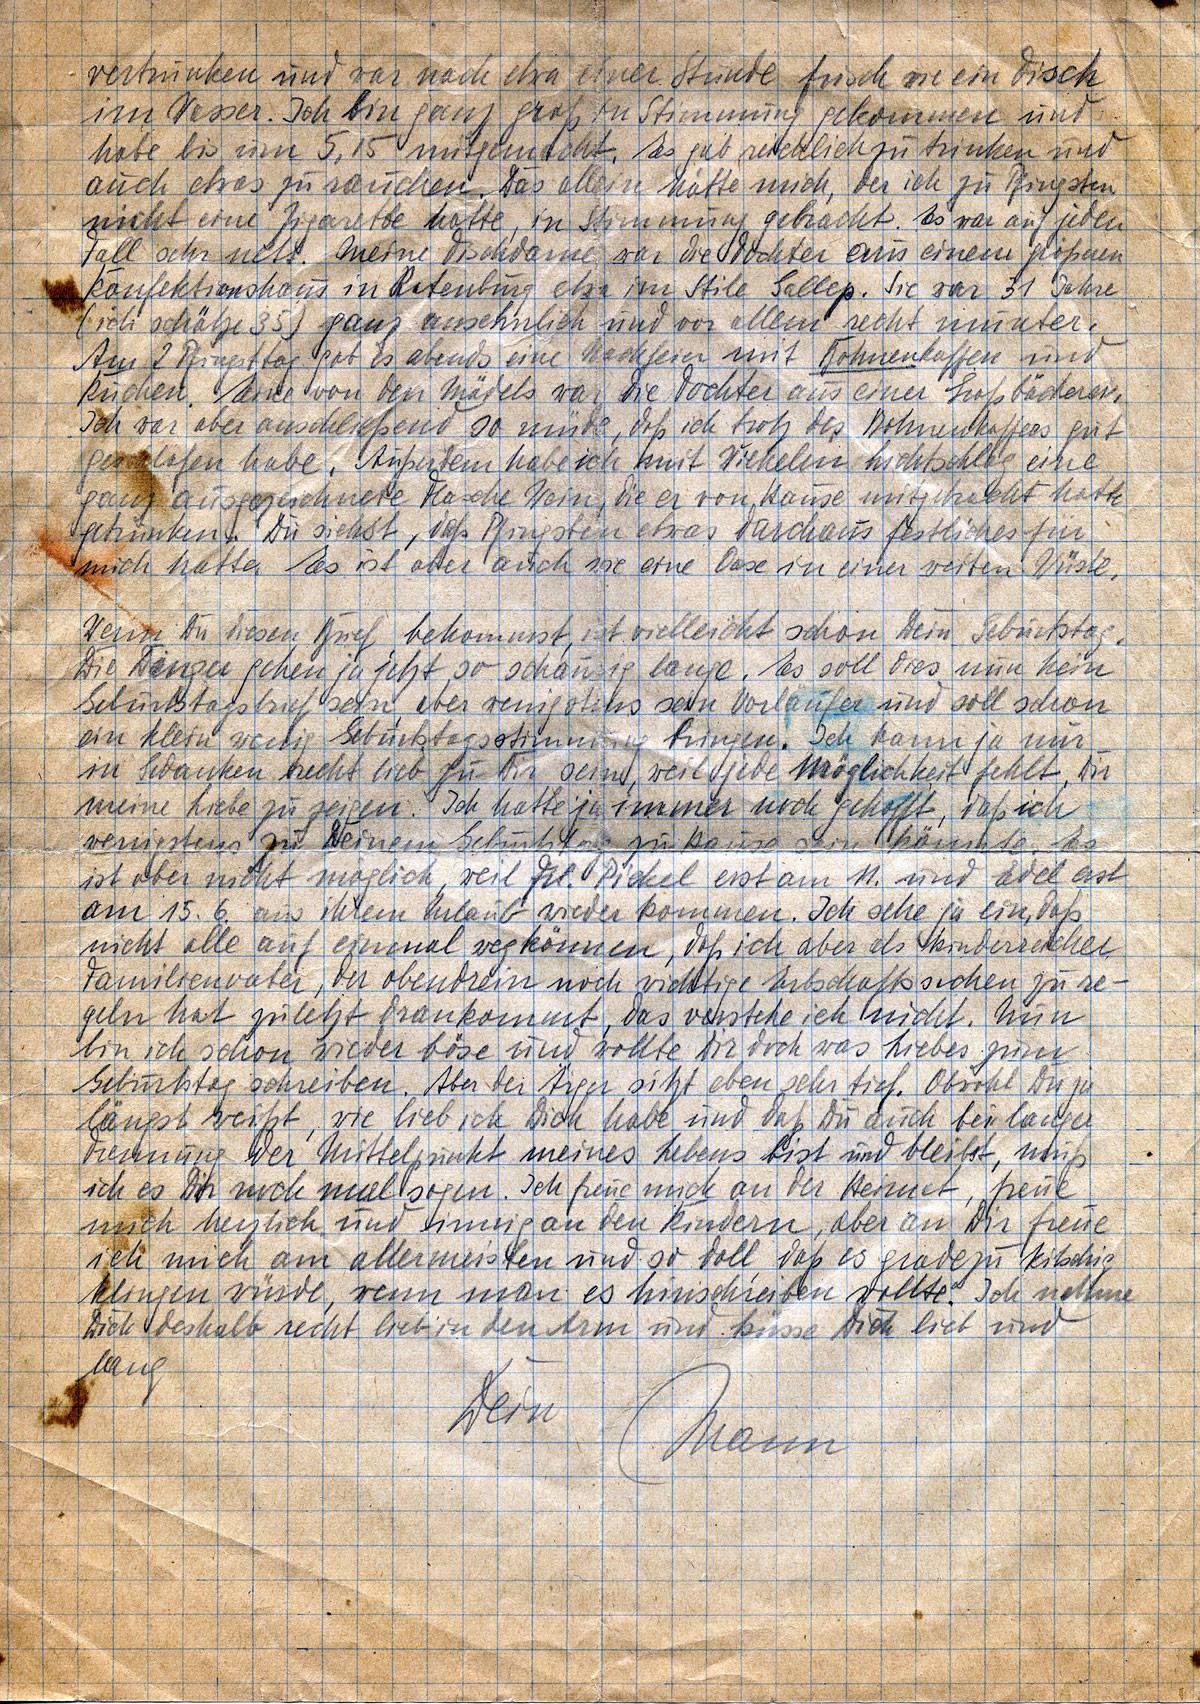 vertrunken und war nach etwa einer Stunde frisch wie ein Fisch
im Wasser. Ich bin ganz groß in Stimmung gekommen und
habe bis um 5,15 mitgemacht. Es gab reichlich zu trinken und
auch etwas zu rauchen. Das allein hatte mich, der ich zu Pfingsten
nicht eine Zigarette hatte, in Stimmung gebracht. Es war auf jeden
Fall sehr nett. Meine Tischdame war die Tochter aus einem größeren
Konfektionshaus in Rotenburg etwa im Stile. Sie war 31 Jahre
(ich schätze 35) ganz ansehnlich und vor allem recht munter.
Am 2 Pfingsttag gab es abends eine Nachfeier mit Bohnenkaffee und
Kuchen. Eine von den Mädels war die Tochter aus einer Großbäckerei.
Ich war aber anschließend so müde, daß ich trotz des Bohnenkaffees gut
geschlafen habe. Außerdem habe ich mit eine
ganz ausgezeichnete Flasche Wein, die er von Hause mitgebracht hatte
getrunken. Du siehst, daß Pfingsten etwas durchaus festliches für
mich hatte. Es ist aber auch wie eine Oase in einer weiten Wüste.
Wenn Du diesen Brief bekommst, ist vielleicht schon Dein Geburtstag.
Die Dinger gehen ja jetzt so schaurig lange. Es soll dies nun kein
Geburtstagsbrief sein aber wenigstens sein Vorläufer und soll schon
ein klein wenig Geburtstagsstimmung bringen. Ich kann ja nur
in Gedanken recht lieb zu Dir sein, weil jede Möglichkeit fehlt, Dir
meine Liebe zu zeigen. Ich hatte ja immer noch gehofft, daß ich
wenigstens zu Deinem Geburtstag zu Hause sein könnte. Es
ist aber nicht möglich, weil Frl. Pickel erst am 11. und Edel erst
am 15.6. aus ihrem Urlaub wieder kommen. Ich sehe ja ein, daß
nicht alle auf einmal wegkönnen, daß ich aber als kinderreicher
Familienvater, der obendrein noch wichtige Erbschaftssachen zu re-
geln hat zuletzt drankommt, das verstehe ich nicht. Nun
bin ich schon wieder böse und wollte Dir doch was Liebes zum
Geburtstag schreiben. Aber der Ärger sitzt eben sehr tief. Obwohl Du ja
längst weißt, wie lieb ich Dich habe und daß Du auch bei langer
Trennung der Mittelpunkt meines Lebens bist und bleibst, muß
ich es Dir noch mal sagen. Ich freue mich an der Heimat, freue
mich herzlich und innig an den Kindern, aber an Dir freue
ich mich am allermeisten und so doll daß es gradezu kitschig
klingen würde, wenn man es hinschreiben wollte. Ich nehme
Dich deshalb recht lieb in den Arm und küsse Dich lieb und
lang
Dein Mann